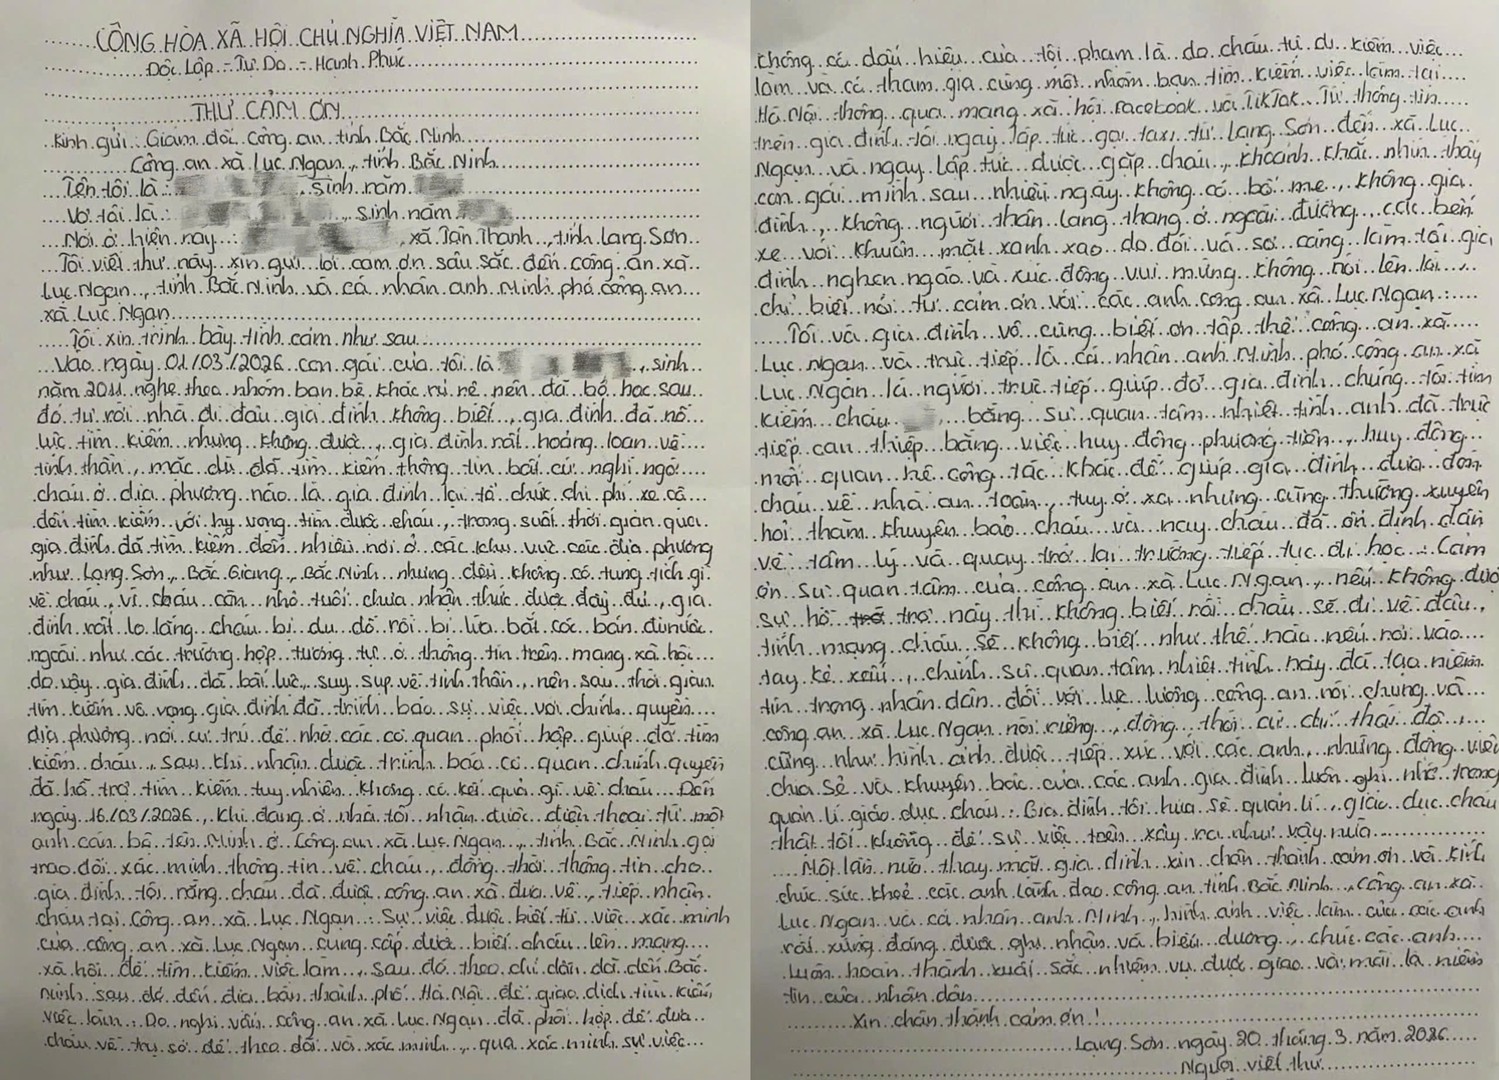 CỘNG HÒA XÃ HỘI CHỦ NGHĨA VIỆT NAM
Độc Lập - Tự Do - Hạnh Phúc
THƯ CẢM ƠN
Kính gửi: Giám đốc Công an tỉnh Bắc Ninh
Công an xã Lục Ngạn, tỉnh Bắc Ninh
Tên tôi là: , sinh năm
Vợ tôi là: , sinh năm
Nơi ở hiện nay: , xã Tân Thanh, tỉnh Lạng Sơn
Tôi viết thư này xin gửi lời cảm ơn sâu sắc đến công an xã
Lục Ngạn, tỉnh Bắc Ninh và cá nhân anh Minh phó công an
xã Lục Ngạn
Tôi xin trình bày tình cảm như sau
Vào ngày 01/03/2026 con gái của tôi là , sinh
năm 2011 nghe theo nhóm bạn bè khác rủ rê nên đã bỏ học sau
đó tự rời nhà đi đâu gia đình không biết, gia đình đã nỗ
lực tìm kiếm nhưng không được, gia đình rất hoảng loạn về
tinh thần, mặc dù đã tìm kiếm thông tin bất cứ nghi ngờ
cháu ở địa phương nào là gia đình lại tổ chức chi phí xe cộ
đến tìm kiếm với hy vọng tìm được cháu, trong suốt thời gian qua
gia đình đã tìm kiếm đến nhiều nơi ở các khu vực các địa phương
như Lạng Sơn, Bắc Giang, Bắc Ninh nhưng đều không có tung tích gì
về cháu, vì cháu còn nhỏ tuổi chưa nhận thức được đầy đủ, gia
đình rất lo lắng cháu bị dụ dỗ rồi bị lừa bắt cóc bán đi nước
ngoài như các trường hợp tương tự ở thông tin trên mạng xã hội
do vậy gia đình đã bất lực, suy sụp về tinh thần, nên sau thời gian
tìm kiếm vô vọng gia đình đã trình báo sự việc với chính quyền
địa phương nơi cư trú để nhờ các cơ quan phối hợp giúp đỡ tìm
kiếm cháu, sau khi nhận được trình báo cơ quan chính quyền
đã hỗ trợ tìm kiếm tuy nhiên không có kết quả gì về cháu. Đến
ngày 16/03/2026, khi đang ở nhà tôi nhận được điện thoại từ một
anh cán bộ tên Minh ở Công an xã Lục Ngạn, tỉnh Bắc Ninh gọi
trao đổi xác minh thông tin về cháu, đồng thời thông tin cho
gia đình tôi rằng cháu đã được công an xã đưa về, tiếp nhận
cháu tại Công an xã Lục Ngạn. Sự việc được biết từ việc xác minh
của công an xã Lục Ngạn cung cấp được biết cháu lên mạng
xã hội để tìm kiếm việc làm, sau đó theo chỉ dẫn đã đến Bắc
Ninh sau đó đến địa bàn thành phố Hà Nội để giao dịch tìm kiếm
việc làm. Do nghi vấn công an xã Lục Ngạn đã phối hợp để đưa
cháu về trụ sở để theo dõi và xác minh, qua xác minh sự việc
không có dấu hiệu của tội phạm là do cháu tự đi kiếm việc
làm và có tham gia cùng một nhóm bạn tìm kiếm việc làm tại
Hà Nội thông qua mạng xã hội Facebook và TikTok. Từ thông tin
trên gia đình tôi ngay lập tức gọi taxi từ Lạng Sơn đến xã Lục
Ngạn và ngay lập tức được gặp cháu, khoảnh khắc nhìn thấy
con gái mình sau nhiều ngày không có bố mẹ, không gia
đình, không người thân lang thang ở ngoài đường, các bến
xe với khuôn mặt xanh xao do đói và sợ càng làm tôi gia
đình nghẹn ngào và xúc động vui mừng không nói lên lời,
chỉ biết nói từ cảm ơn với các anh công an xã Lục Ngạn.
Tôi và gia đình vô cùng biết ơn tập thể công an xã
Lục Ngạn và trực tiếp là cá nhân anh Minh phó công an xã
Lục Ngạn là người trực tiếp giúp đỡ gia đình chúng tôi tìm
kiếm cháu , bằng sự quan tâm nhiệt tình anh đã trực
tiếp can thiệp bằng việc huy động phương tiện, huy động
mối quan hệ công tác khác để giúp gia đình đưa đón
cháu về nhà an toàn, tuy ở xa nhưng cũng thường xuyên
hỏi thăm khuyên bảo cháu và nay cháu đã ổn định dần
về tâm lý và quay trở lại trường tiếp tục đi học. Cảm
ơn sự quan tâm của công an xã Lục Ngạn, nếu không được
sự hỗ trợ này thì không biết rồi cháu sẽ đi về đâu,
tính mạng cháu sẽ không biết như thế nào nếu rơi vào
tay kẻ xấu, chính sự quan tâm nhiệt tình này đã tạo niềm
tin trong nhân dân đối với lực lượng công an nói chung và
công an xã Lục Ngạn nói riêng, đồng thời cử chỉ thái độ,
cũng như hình ảnh được tiếp xúc với các anh, những động viên
chia sẻ và khuyên bảo của các anh gia đình luôn ghi nhớ trong
quản lí giáo dục cháu. Gia đình tôi hứa sẽ quản lí, giáo dục cháu
thật tốt không để sự việc trên xảy ra như vậy nữa
Một lần nữa thay mặt gia đình xin chân thành cảm ơn và kính
chúc sức khoẻ các anh lãnh đạo công an tỉnh Bắc Ninh, Công an xã
Lục Ngạn và cá nhân anh Minh, hình ảnh việc làm của các anh
rất xứng đáng được ghi nhận và biểu dương, chúc các anh
luôn hoàn thành xuất sắc nhiệm vụ được giao và mãi là niềm
tin của nhân dân
Xin chân thành cảm ơn!
Lạng Sơn ngày 20 tháng 3 năm 2026
Người viết thư